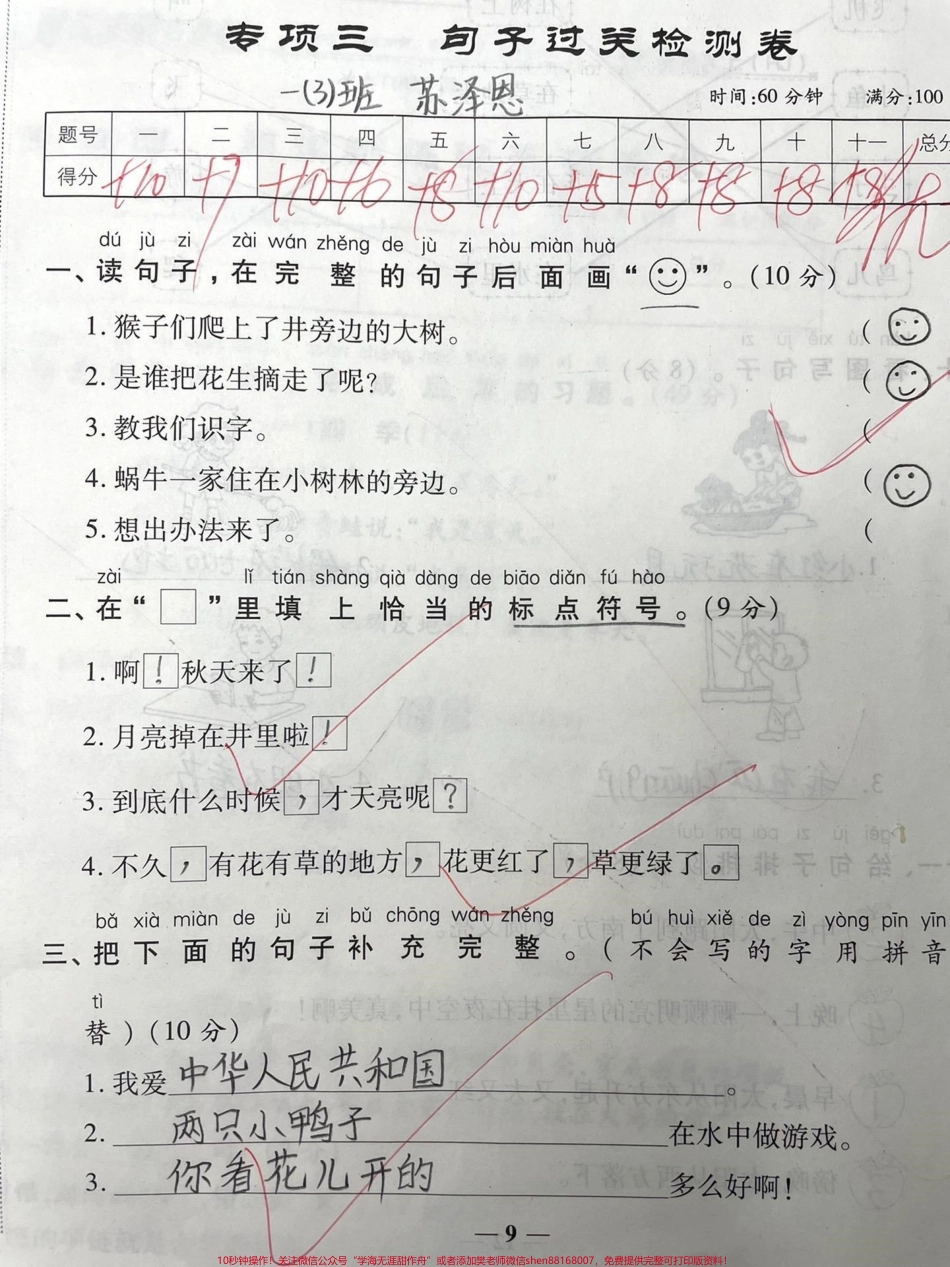 专项三 句子过关检测卷
一(3)班 苏泽恩
时间:60分钟 满分:100
题号 一 二 三 四 五 六 七 八 九 十 十一 总分
得分 +10 +7 +10 +6 +8 +10 +5 +8 +8 +8 +8
dú jù zi zài wán zhěng de jù zi hòu miàn huà
一、读句子,在完整的句子后面画“☺”。(10分)
1. 猴子们爬上了井旁边的大树。 (☺
2. 是谁把花生摘走了呢? (☺
3. 教我们识字。 (
4. 蜗牛一家住在小树林的旁边。 (☺
5. 想出办法来了。 (
zài lǐ tián shàng qià dàng de biāo diǎn fú hào
二、在“□”里填上恰当的标点符号。(9分)
1. 啊!秋天来了!
2. 月亮掉在井里啦!
3. 到底什么时候,才天亮呢?
4. 不久,有花有草的地方,花更红了,草更绿了。
bǎ xià miàn de jù zi bǔ chōng wán zhěng bú huì xiě de zì yòng pīn yīn
三、把下面的句子补充完整。(不会写的字用拼音
tì
替)(10分)
1. 我爱中华人民共和国。
2. 两只小鸭子在水中做游戏。
3. 你看花儿开的多么好啊!
— 9 —
10秒钟操作!关注微信公众号“学海无涯甜作舟”或者添加樊老师微信shen88168007,免费提供完整可打印版资料!